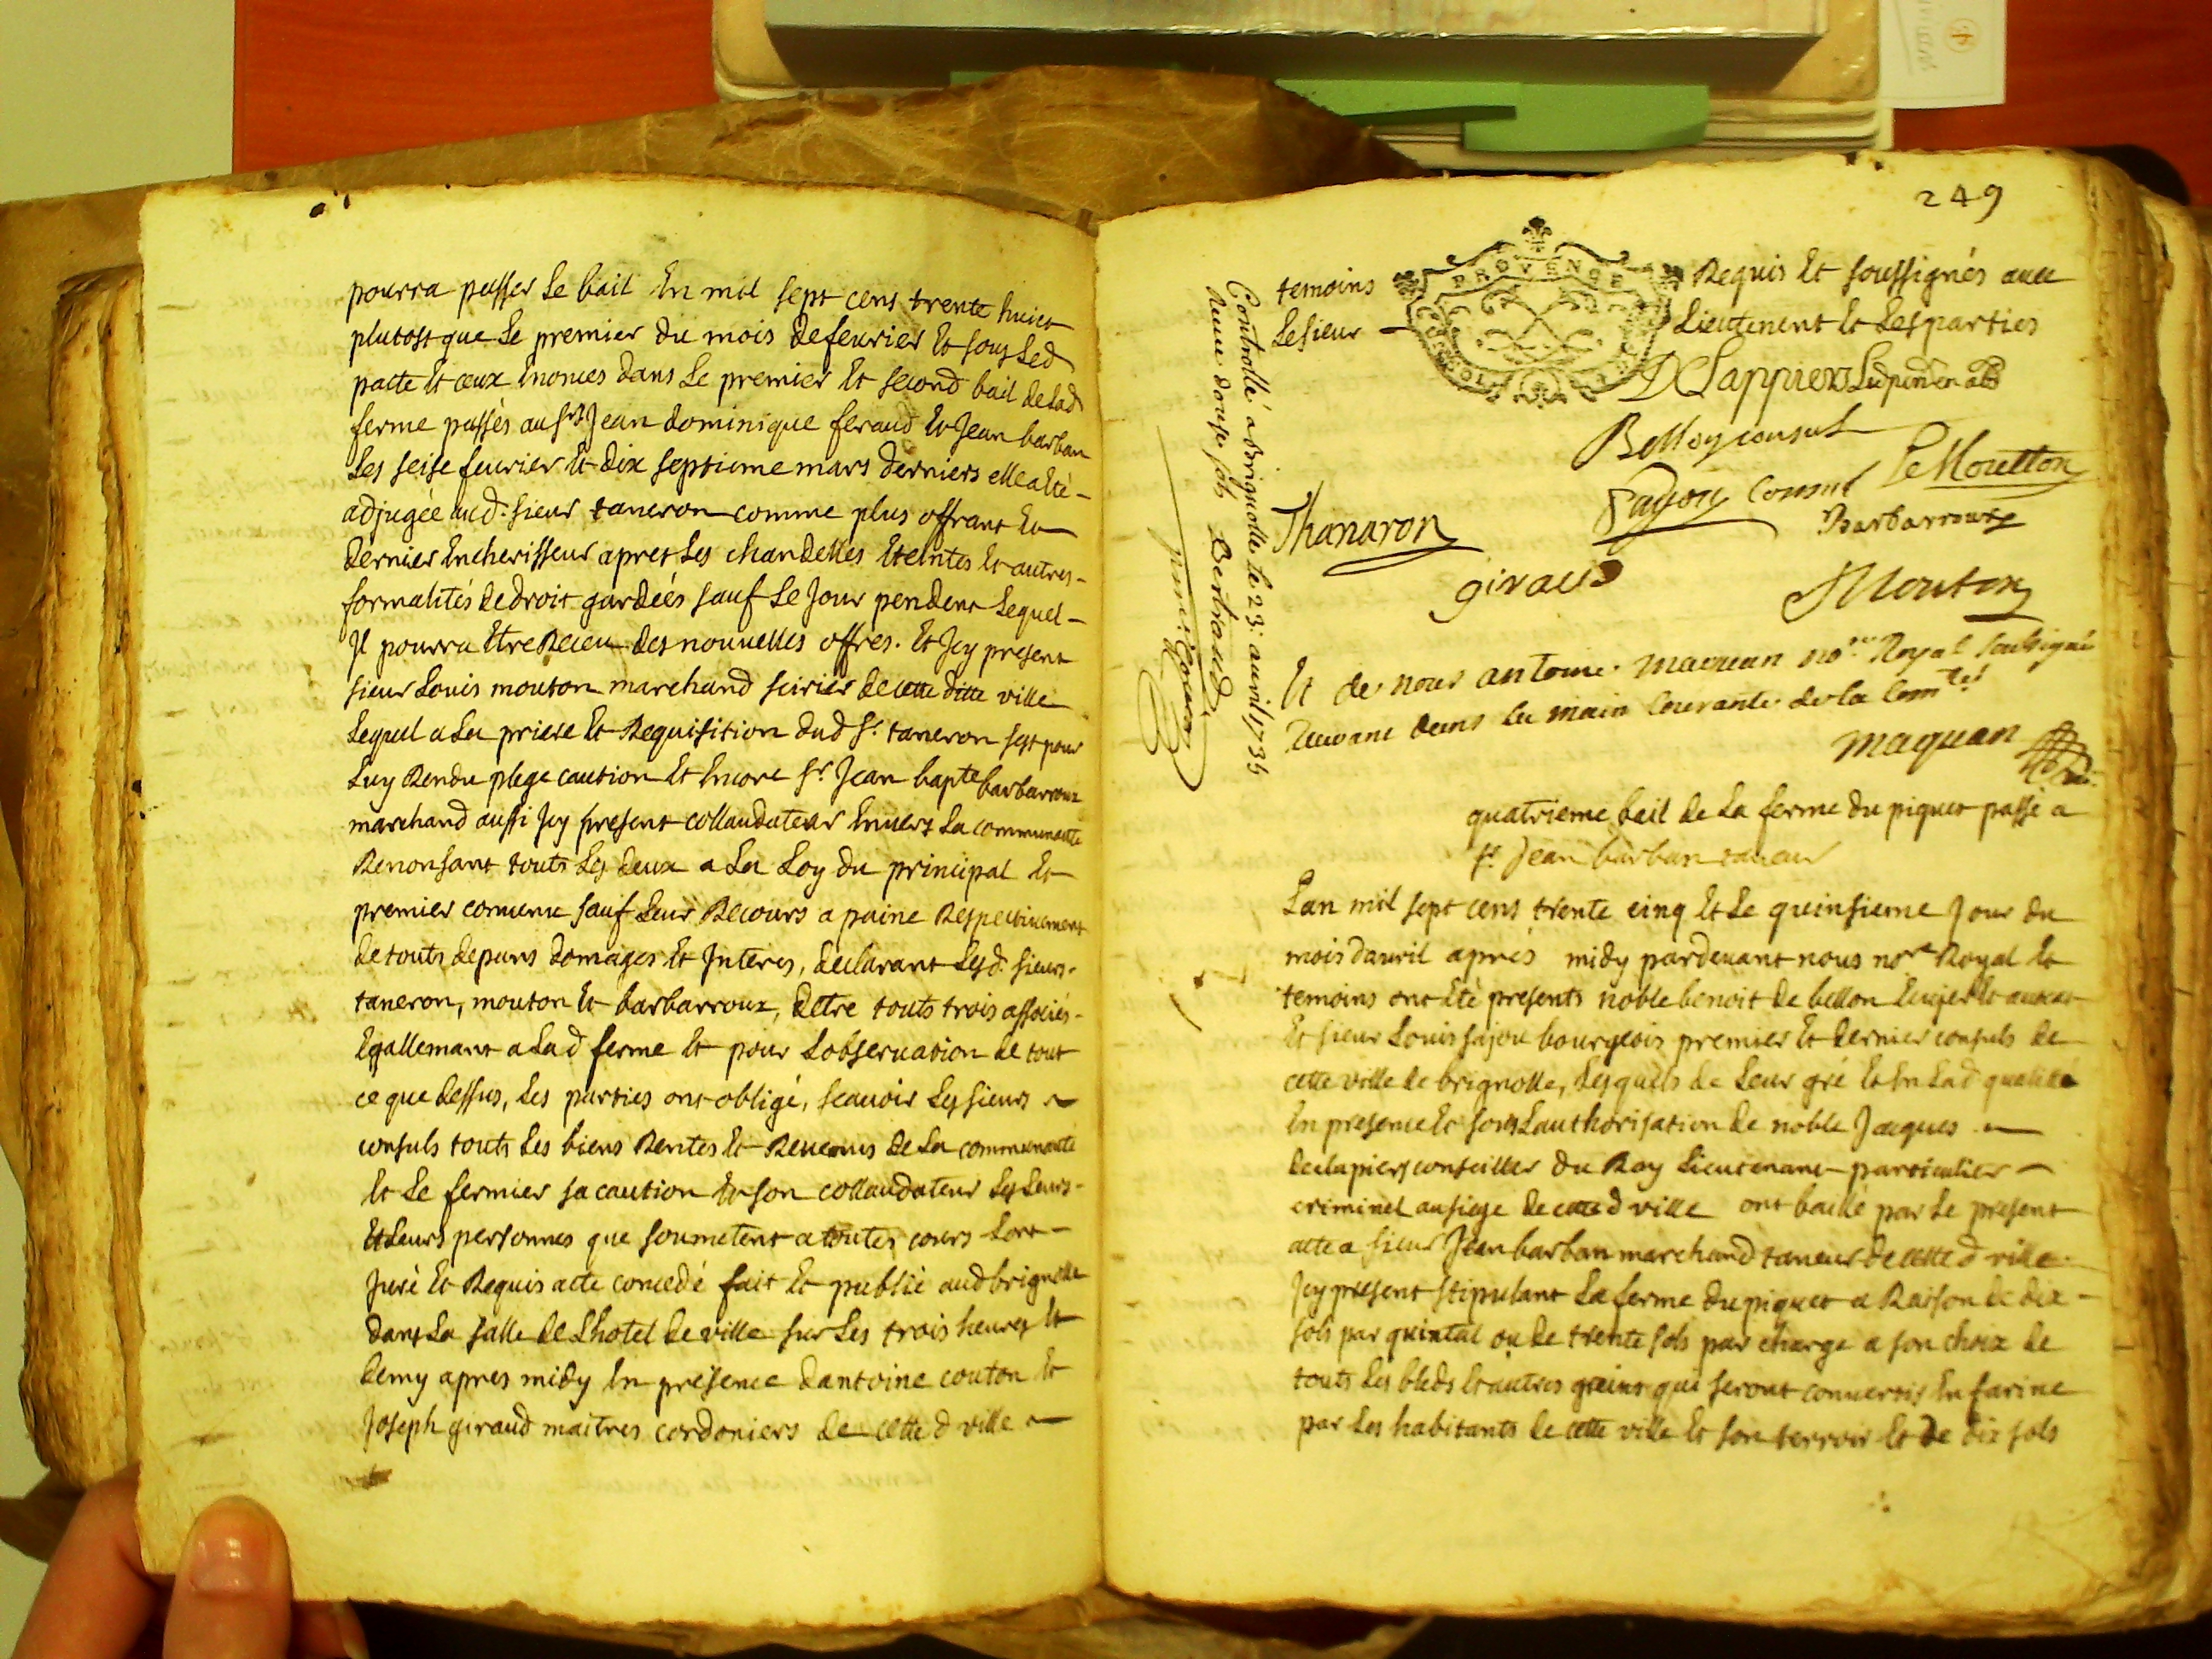 pourra passer le bail En mil sept cens trente huict
plutost que Le premier du mois de feurier Et sous Led
pacte Et ceux Enonces dans Le premier Et second bail de Lad
ferme passés au srs Jean dominique feraud Et Jean barban
Les seise feurier Et dix septieme mars derniers elle a Eté -
adjugée aud: sieur taneron comme plus offrant Et
dernier Encherisseur apres Les chandelles Eteintes Et autres -
formalités de droit gardéés sauf Le Jour pendent Lequel -
Jl pourra Etre Receu des nouuelles offres. Et Jcy present
sieur Louis mouton marchand seirier de cette ditte ville
Lequel a La priere Et Requisition dud sr. taneron sest pour
Luy Rendu plege caution Et Encore sr Jean bapte barbarroux
marchand aussi Jcy present collaudateur Enuers La communauté
Renonsant touts Les deux a La Loy du principal Et
premier conuenu sauf Leur Recours a paine Respectiuement
de touts depans domages Et Interes, declarant Lesd. sieurs -
taneron, mouton Et barbarroux, dEtre touts trois associés -
Egallemant a Lad ferme Et pour Lobseruation de tout
ce que dessus, Les parties ont obligé, scauoir Les sieurs
consuls touts Les biens Rentes Et Reuenus de La communauté
Et Le fermier sa caution Et son collaudateur Les Leurs -
Et Leurs personnes que soumetent a toutes cours Lont -
Juré Et Requis acte concedé fait Et publié aud brignolle
dans La salle de Lhotel de ville sur Les trois heures Et
demy apres midy En presence dantoine couton Et
Joseph giraud maitres cordoniers de cette d ville
249
temoins Requis Et soussignés auec
Le sieur - Lieutenent Et Les parties
PROVENCE
DLappiers
Bellon consul
Fajou Consul Le Moutton
Thanaron Barbarroux
giraud
Mouton
Et de nous antoine maquan nore Royal soubsigné
Receuant dans La main Courante de la Comté
maquan
Controllé a Brignolle le 23: auril 1735
Receu douze sols Bertrand
quatrieme bail de La ferme du piquet passé a
sr Jean barban taneur
Lan mil sept cens trente cinq Et Le quinsieme Jour du
mois dauril aprés midy pardeuant nous nore Royal Et
temoins ont Eté presents noble benoit de bellon Ecuyer Et auocat
Et sieur Louis fajou bourgeois premier Et dernier consuls de
cette ville de brignolle, Lesquels de Leur gré Et En Lad qualitté
En presence Et sous Lauthorisation de noble Jacques
de clapiers conseiller du Roy Lieutenant particulier
criminel au siege de cette d ville ont baillé par Le present
acte a sieur Jean barban marchand taneur de cette d ville
Jcy present stipulant La ferme du piquet a Raison de dix -
sols par quintal ou de trente sols par charge a son choix de
touts Les bleds Et autres grains qui seront conuertis En farine
par Les habitants de cette ville Et son terroir Et de dix sols